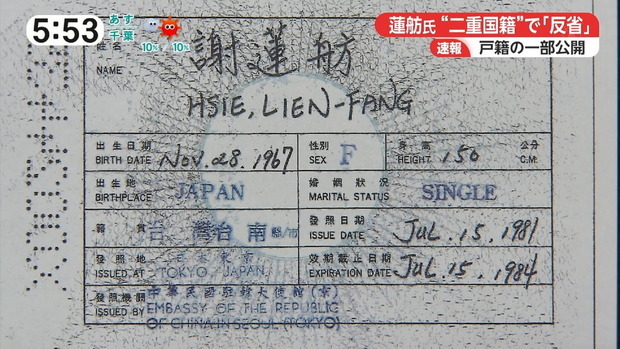 5:53
あす
千葉
10% 10%
蓮舫氏 “二重国籍”で「反省」
速報 戸籍の一部公開
姓名
NAME
謝蓮舫
HSIE, LIEN-FANG
出生日期
BIRTH DATE
Nov. 28. 1967
性別
SEX
F
身高
HEIGHT
150
公分
C.M.
出生地
BIRTHPLACE
JAPAN
婚姻狀況
MARITAL STATUS
SINGLE
籍貫
台灣台南縣/市
發照日期
ISSUE DATE
JUL. 15. 1981
發照地
ISSUED AT
日本東京
TOKYO, JAPAN
效期截止日期
EXPIRATION DATE
JUL. 15. 1984
發照機關
ISSUED BY
EMBASSY OF THE REPUBLIC
OF CHINA IN SEOUL (TOKYO)